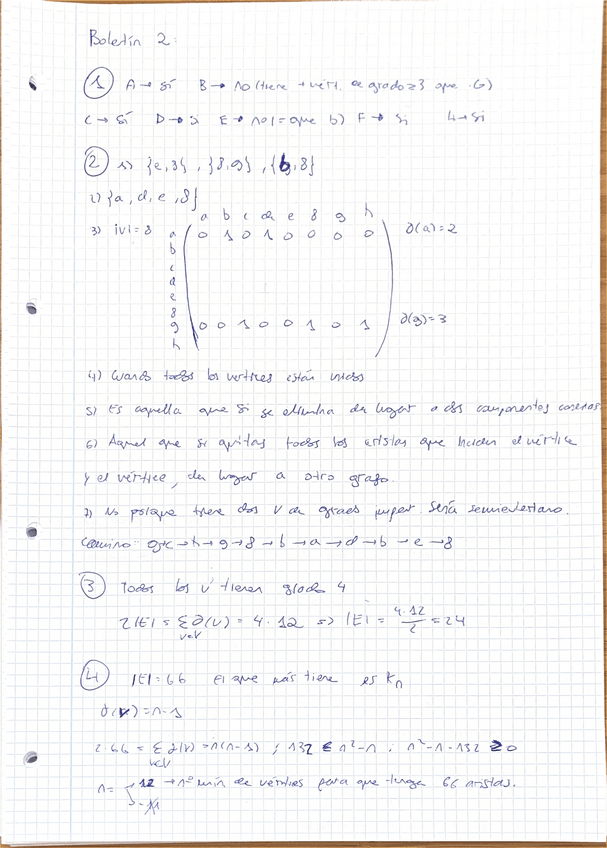 Boletín 2:
① A→ Sí B→ no (tiene + vért. de grado ≥3 que G)
C→ Sí D→ si E→ no (= que b) F→ Si H→ Si
② 1) {e,8}, {8,g}, {b,8}
2) {a, d, e, 8}
a b c d e 8 g h
3) |V|=8 a 0 1 0 1 0 0 0 0 ∂(a)=2
b
c
d
e
8
g 0 0 1 0 0 1 0 1 ∂(g)=3
h
4) Cuando todos los vertices están unidos
5) Es aquella que si se elimina da lugar a dos componentes conexas.
6) Aquel que si quitas todas las aristas que inciden el vértice
y el vértice, da lugar a otro grafo.
7) No porque tiene dos V de grado impar. Será semieuleriano.
Camino: g→c→h→g→8→b→a→d→b→e→8
③ Todos los V tienen grado 4
2|E| = Σ ∂(V) = 4·12 => |E| = 4·12/2 = 24
v∈V
④ |E|=66 El que más tiene es Kn
∂(V)=n-1
2·66 = Σ ∂(V) = n(n-1) ; 132 ≤ n²-n ; n²-n-132 ≥ 0
v∈V
n= 12 → nº mín de vértices para que tenga 66 aristas.
-11